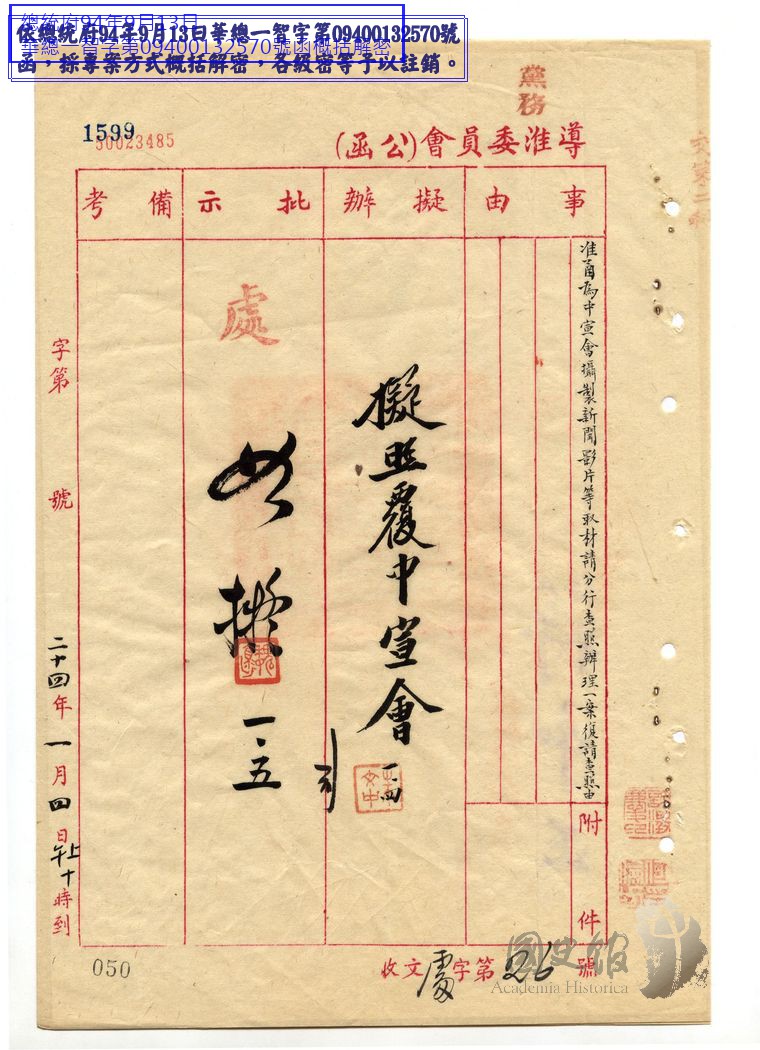 總統府94年9月13日
華總一智字第09400132570號函概括解密
依總統府94年9月13日華總一智字第09400132570號
函，採專案方式概括解密，各級密等予以註銷。
黨務
1599
50023485
導淮委員會(公函)
事由
擬辦
批示
備考
准函為中宣會攝製新聞影片等取材請分行查照辦理一案復請查照由
附件
擬照覆中宣會
一、四
處
如擬
一、五
字第 號
二十四年一月四日上午十時到
收文處字第26號
050
國史館
Academia Historica